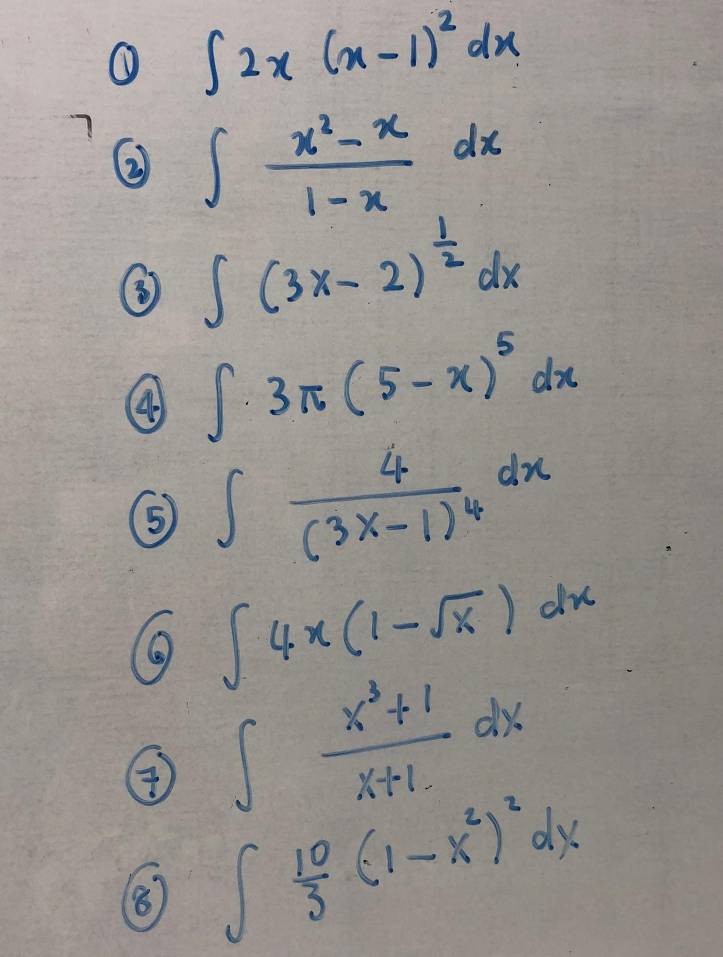 ① ∫ 2x (x-1)² dx
② ∫ (x² - x)/(1 - x) dx
③ ∫ (3x - 2)^(1/2) dx
④ ∫ 3π (5 - x)⁵ dx
⑤ ∫ 4/(3x - 1)⁴ dx
⑥ ∫ 4x (1 - √x) dx
⑦ ∫ (x³ + 1)/(x + 1) dx
⑧ ∫ 10/3 (1 - x²)² dx